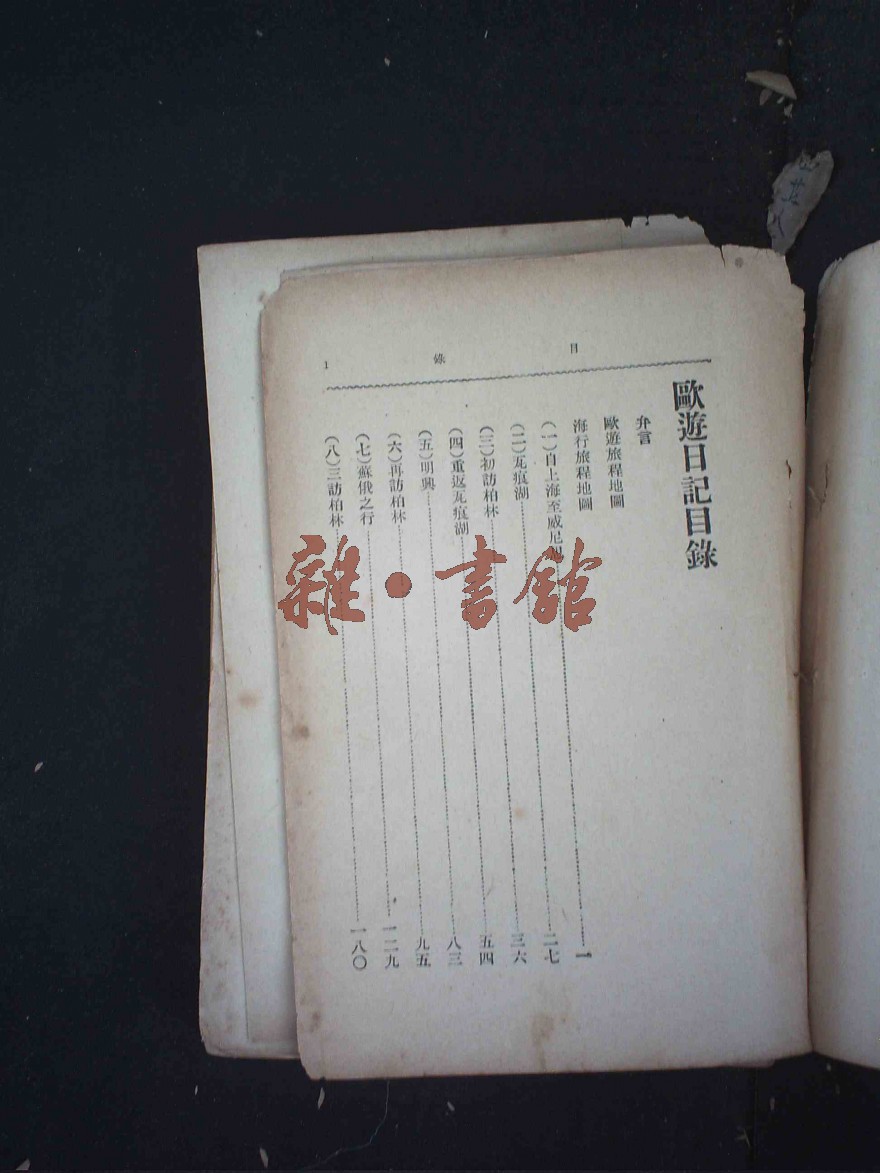 目錄 1
歐遊日記目錄
弁言
歐遊旅程地圖
海行旅程地圖
(一)自上海至威尼斯……一
(二)瓦痕湖……二七
(三)初訪柏林……三六
(四)重返瓦痕湖……五四
(五)明興……八三
(六)再訪柏林……九五
(七)蘇俄之行……一二九
(八)三訪柏林……一八〇
雜·書館